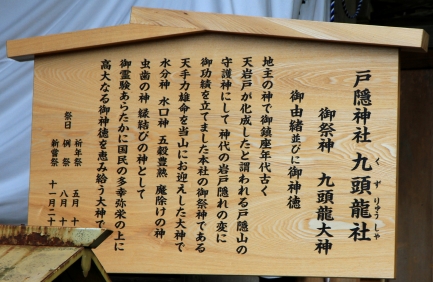 戸隠神社 九頭龍社
くずりゅうしゃ
御祭神 九頭龍大神
御由緒並びに御神徳
地主の神で御鎮座年代古く
天岩戸が化成したと謂われる戸隠山の
守護神にして神代の岩戸隠れの変に
御功績を立てました本社の御祭神である
天手力雄命を当山にお迎えした大神で
水分神 水口神 五穀豊熟 魔除けの神
虫歯の神 縁結びの神として
御霊験あらたかに国民の多幸弥栄の上に
高大なる御神徳を恵み給う大神で
祭日 祈年祭 五月十
例祭 八月十
新嘗祭 十一月二十